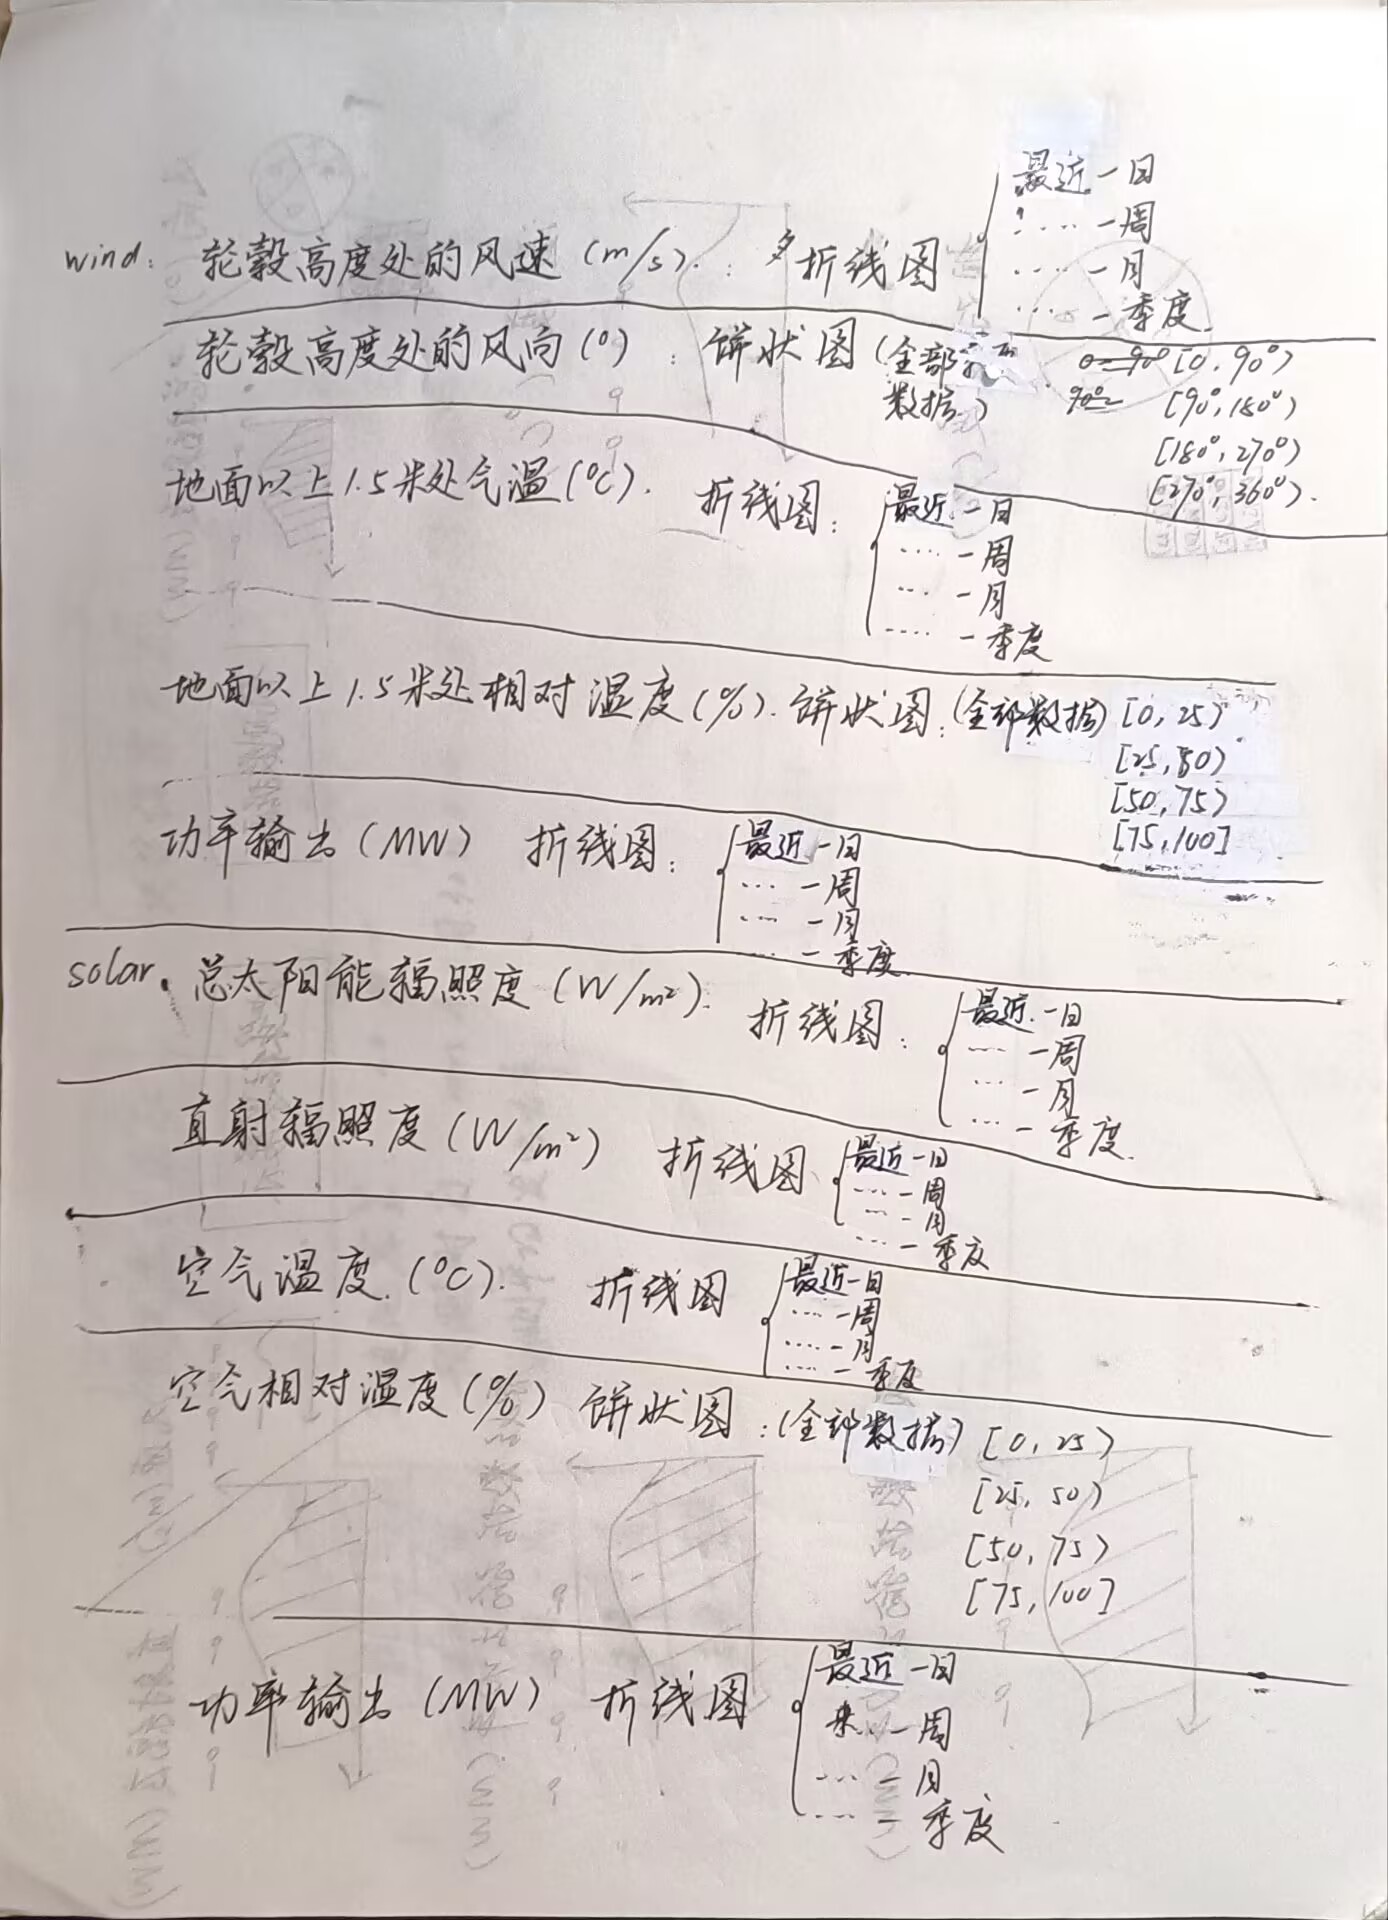 wind: 轮毂高度处的风速(m/s). : 多折线图 最近一日
.... 一周
.... 一月
.... 一季度
轮毂高度处的风向(°) : 饼状图(全部
数据) [0, 90°)
[90°, 180°)
[180°, 270°)
[270°, 360°).
地面以上1.5米处气温(°C). 折线图: 最近一日
.... 一周
... 一月
.... 一季度
地面以上1.5米处相对湿度(%). 饼状图: (全部数据) [0, 25)
[25, 50)
[50, 75)
[75, 100]
功率输出(MW) 折线图: 最近一日
... 一周
... 一月
... 一季度
solar. 总太阳能辐照度(W/m²). 折线图: 最近一日
... 一周
... 一月
... 一季度.
直射辐照度(W/m²) 折线图 最近一日
... 一周
... 一月
... 一季度
空气温度.(°C). 折线图 最近一日
.... 一周
.... 一月
.... 一季度
空气相对湿度(%) 饼状图: (全部数据) [0, 25)
[25, 50)
[50, 75)
[75, 100]
功率输出(MW) 折线图 最近一日
一周
.... 一月
.... 一季度